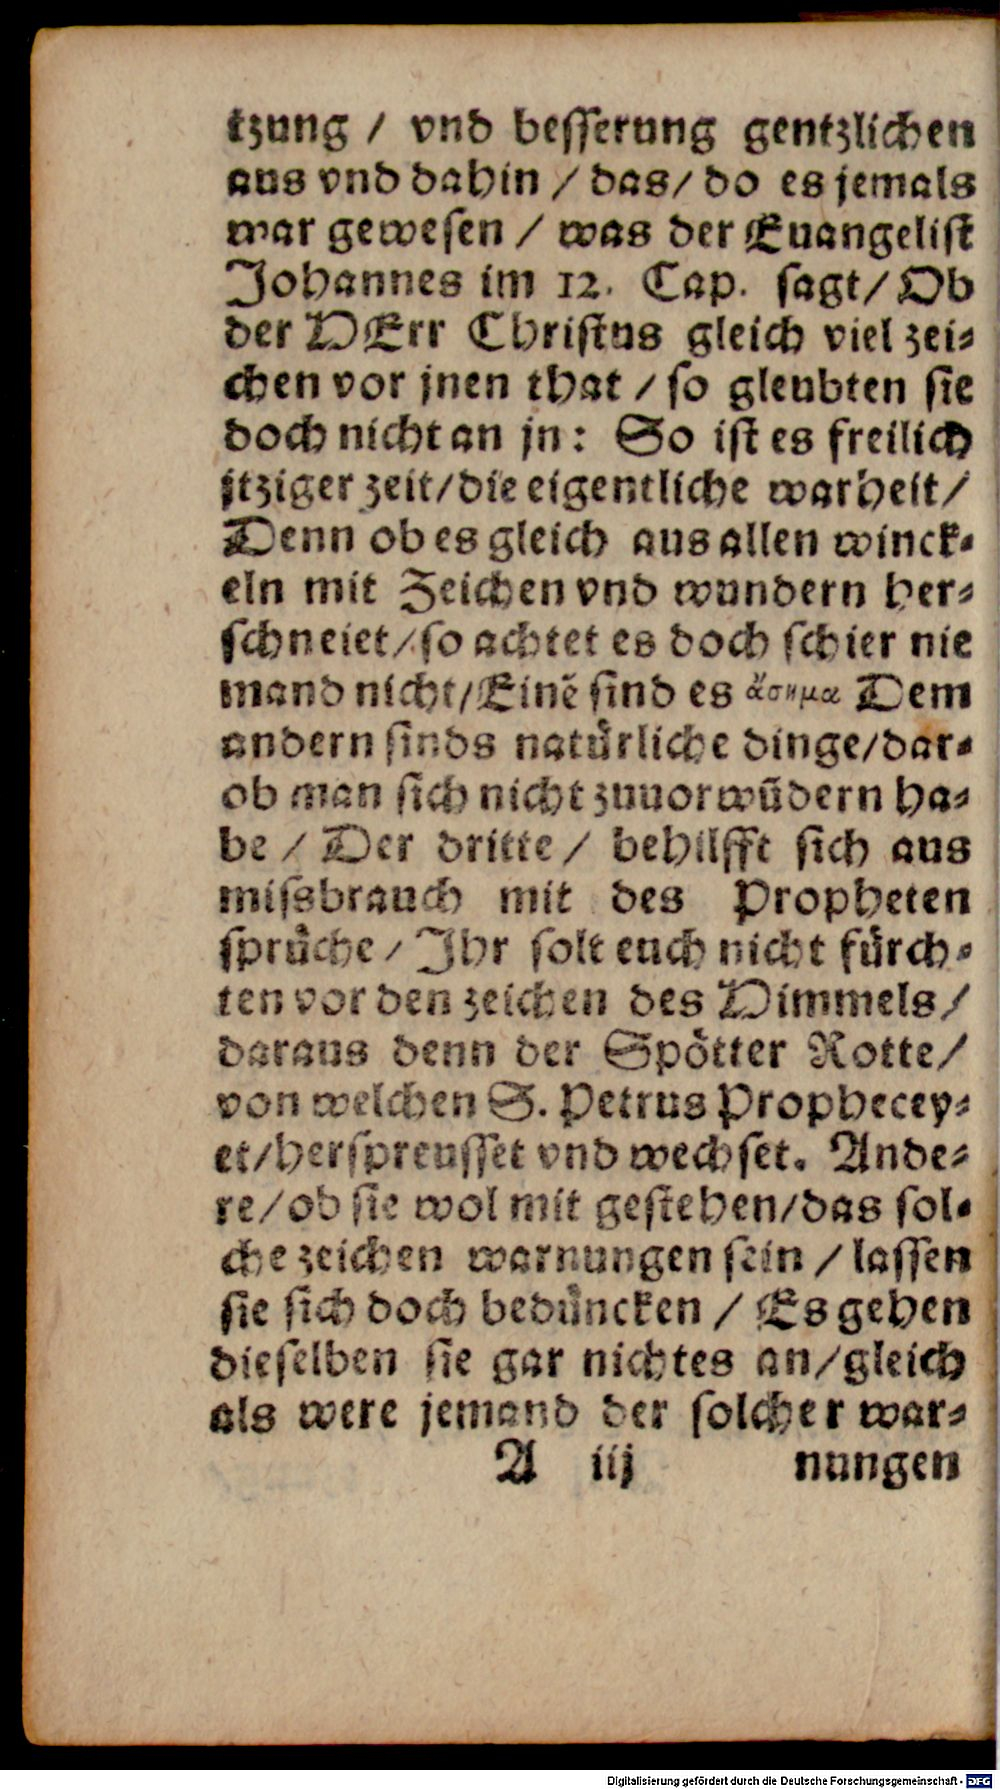 tzung / vnd besserung gentzlichen
aus vnd dahin / das / do es jemals
war gewesen / was der Euangelist
Johannes im 12. Cap. sagt / Ob
der HErr Christus gleich viel zei⸗
chen vor jnen that / so gleubten sie
doch nicht an jn: So ist es freilich
jtziger zeit / die eigentliche warheit /
Denn ob es gleich aus allen winck⸗
eln mit Zeichen vnd wundern her⸗
schneiet / so achtet es doch schier nie
mand nicht / Einē sind es ἄσημα Dem
andern sinds natürliche dinge / dar⸗
ob man sich nicht zuuorwūdern ha⸗
be / Der dritte / behilfft sich aus
missbrauch mit des Propheten
sprüche / Ihr solt euch nicht fürch⸗
ten vor den zeichen des Himmels /
daraus denn der Spötter Rotte /
von welchen S. Petrus Prophecey⸗
et / herspreusset vnd wechset. Ande⸗
re / ob sie wol mit gestehen / das sol⸗
che zeichen warnungen sein / lassen
sie sich doch bedüncken / Es gehen
dieselben sie gar nichtes an / gleich
als were jemand der solcher war⸗
A iij nungen
Digitalisierung gefördert durch die Deutsche Forschungsgemeinschaft - DFG